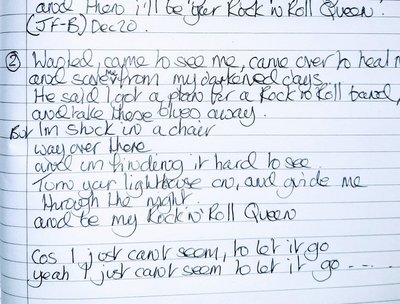 and then i'll be your Rock'n Roll Queen.
(JF-B) Dec 20.
② Wanted, came to see me, came over to heal m
and save from my darkened days
He said I got a plan for a Rock'n'Roll band,
and take these blues away.
But I'm stuck in a chair
way over there
and im finding it hard to see
Turn your lighthouse on, and guide me
through the night
and be my Rock'n'Roll Queen
Cos I just can't seem, to let it go
yeah I just can't seem to let it go ----